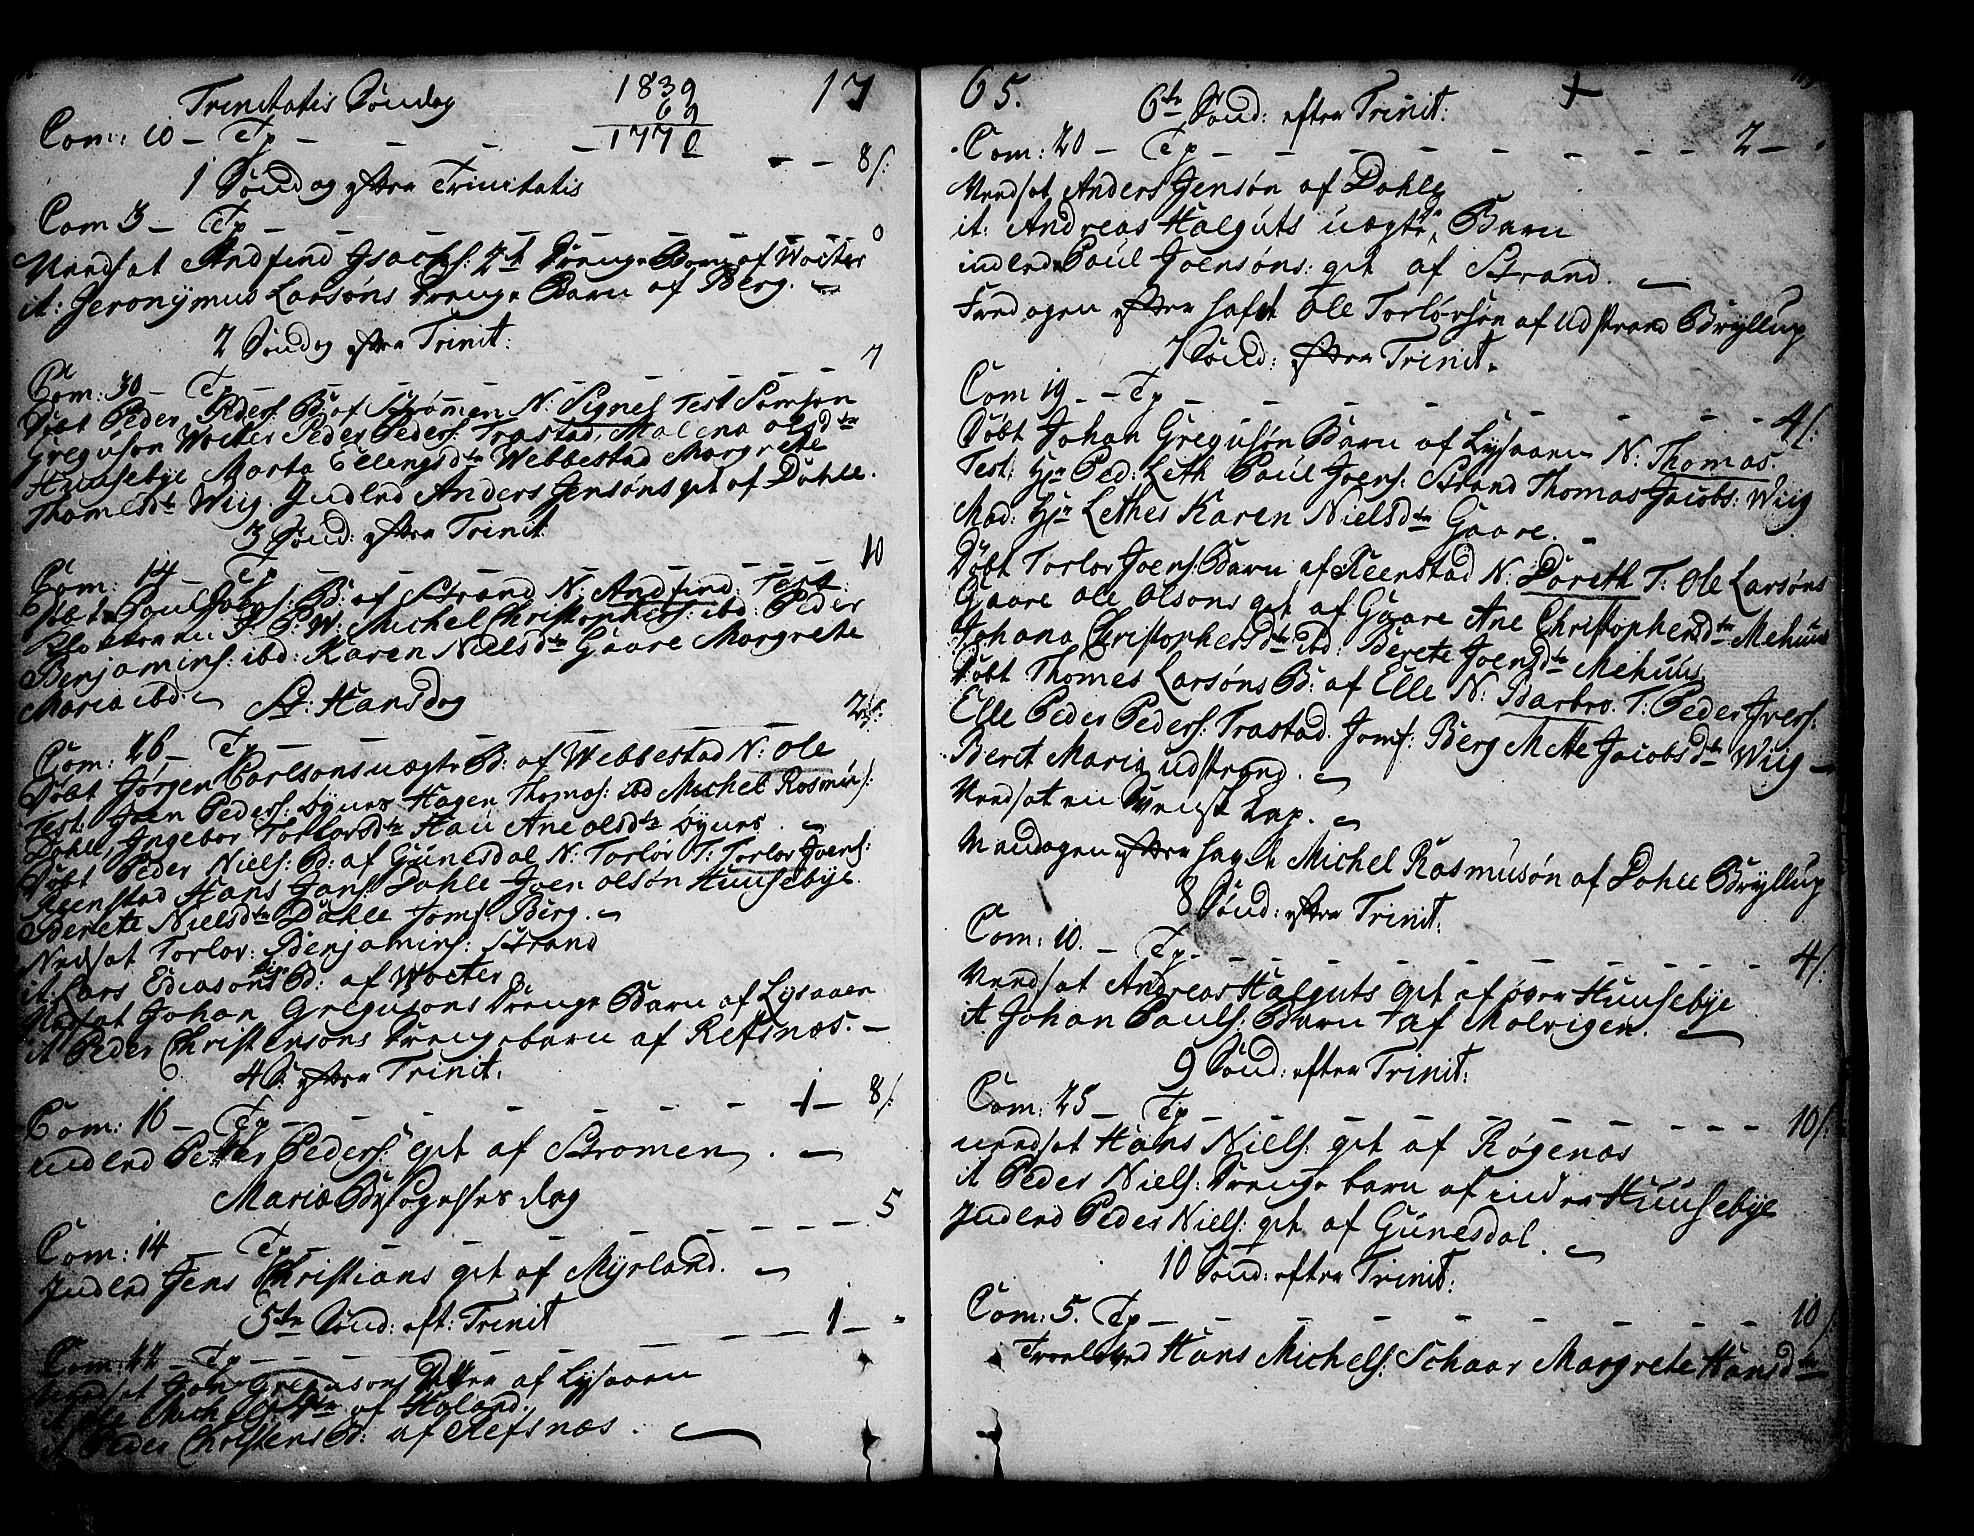 Trinitatis Søndag 1839 17
69
Com: 10 – Tp – – – – 1770 – – 8/:
1 Søndag efter Trinitatis
Com 3 – Tp – – – – – – 0
Nedsat Andfind Isachs: Drenge Barn af Wocter
it: Jeronÿmus Larsøns Drenge Barn af Berg.
2 Søndag efter Trinit:
Com: 30 – Tp – – – – – 7
Døbt Peder Peders: B: af Strømen N: Signel Test Samson
Greguson Wocter Peder Peders: Trastad, Malena olsdtr
Huusebÿe Marta Ellingsdtr Webbestad Margrete
Thomesdtr Wiig. Indled Anders Jensøns qvt af Dahle.
3 Sønd: efter Trinit
Com: 14 – Tp – – – – – 10
Døbt Paul Joens: B: af Strand N: Andfind: Test:
P: W: Michel Christophers: ibd: Peder
Benjamins: ibd: Karen Nielsdtr Gaare Margrete
Maria ibd:
St: Hansdag
Com: 26 – Tp – – – – – 2
Døbt Jørgen Carlsons uægte B: af Webbestad N: Ole
Test: Joen Peders: Bÿnes Hagen Thomas: ibd Michel Rasmús:
Dahle, Ingebor Torlorsdtr Hau Ane olsdtr Bÿnes.
Døbt Peder Niels: B: af Gúnesdal N: Torlor T: Torlor Joens:
Reenstad Hans Jans: Dahle Joen olsøn Huusebÿe.
Berete Nielsdtr Dahle Jomf: Berg.
Nedsat Torlor: Benjamins: Strand
it: Lars Ediasons B: af Wocter
Nedsat Johan Gregusons Drenge Barn af Lysaaen
it Peder Christensons Drengebarn af Refsnæs. –
4 S: efter Trinit.
Com: 16 – Tp – – – – – 1 – 8/:
Indled Petter Peders: qvt af Stromen.
Mariæ Besøgelses dag
Com: 14 – Tp – – – – – 5
Indled Jens Christians qvt af Mÿrland.
5te Sønd: eft: Trinit
Com: 22 – Tp – – – – – 1 –
Nedsat Johan Gregusons af Lysaaen
af Haland.
it Peder Christens B: af Refsnæs.
65.
6te Sønd: efter Trinit:
Com: 20 – Tp – – – – – – 2 –
Nedsat Anders Jensøn af Dahle
it: Andreas Halguts uægte Barn
indled Paul Joensøns: qvt af Strand.
Fredagen efter hafdt Ole Torlørsen af Udstrand Brÿllup
7 Sønd: efter Trinit.
Com 19 – – Tp – – – – – 4/:
Døbt Johan Gregusøn Barn af Lysaaen N: Thomas.
Test: Hr: Ped: Leth Paul Joens: Strand Thomas Jacobs: Wiig
Mad: Hr: Lethes Karen Nielsdtr Gaare.
Døbt Torlor Joens: Barn af Reenstad N: Doreth T: Ole Larsøns
Gaare Ole Olsøns qvt af Gaare Ane Christophersdtr Mehuus
Johana Christophersdtr ibd: Berete Joensdtr Mehuus.
Døbt Thomes Larsøns B: af Elle N: Barbro. T: Peder Ivers:
Elle Peder Peders: Trastad Jomf: Berg Mette Jacobsdtr Wiig –
Berit Maria udstrand.
Nedsat en Svensk Lap.
Mandagen efter hafdt Michel Rasmusøn af Dahle Brÿllup
8 Sønd: efter Trinit:
Com: 10. – Tp – – – – – 4/:
Nedsat Andreas Halguts qvt af øvre Huusebÿe
it. Johan Pauls: Barn af Molvigen.
9 Sønd: efter Trinit:
Com: 25 – Tp – – – – – 10/:
nedsat Hans Niels: qvt af Røgenæs
it Peder Niels: Drenge barn af indre Huusebÿe
Indled Peder Niels: qvt af Gúnesdal.
10 Sønd: efter Trinit:
Com: 5. Tp – – – – – – 10/:
Troeloved Hans Michels: Schaar Margrete Hansdtr